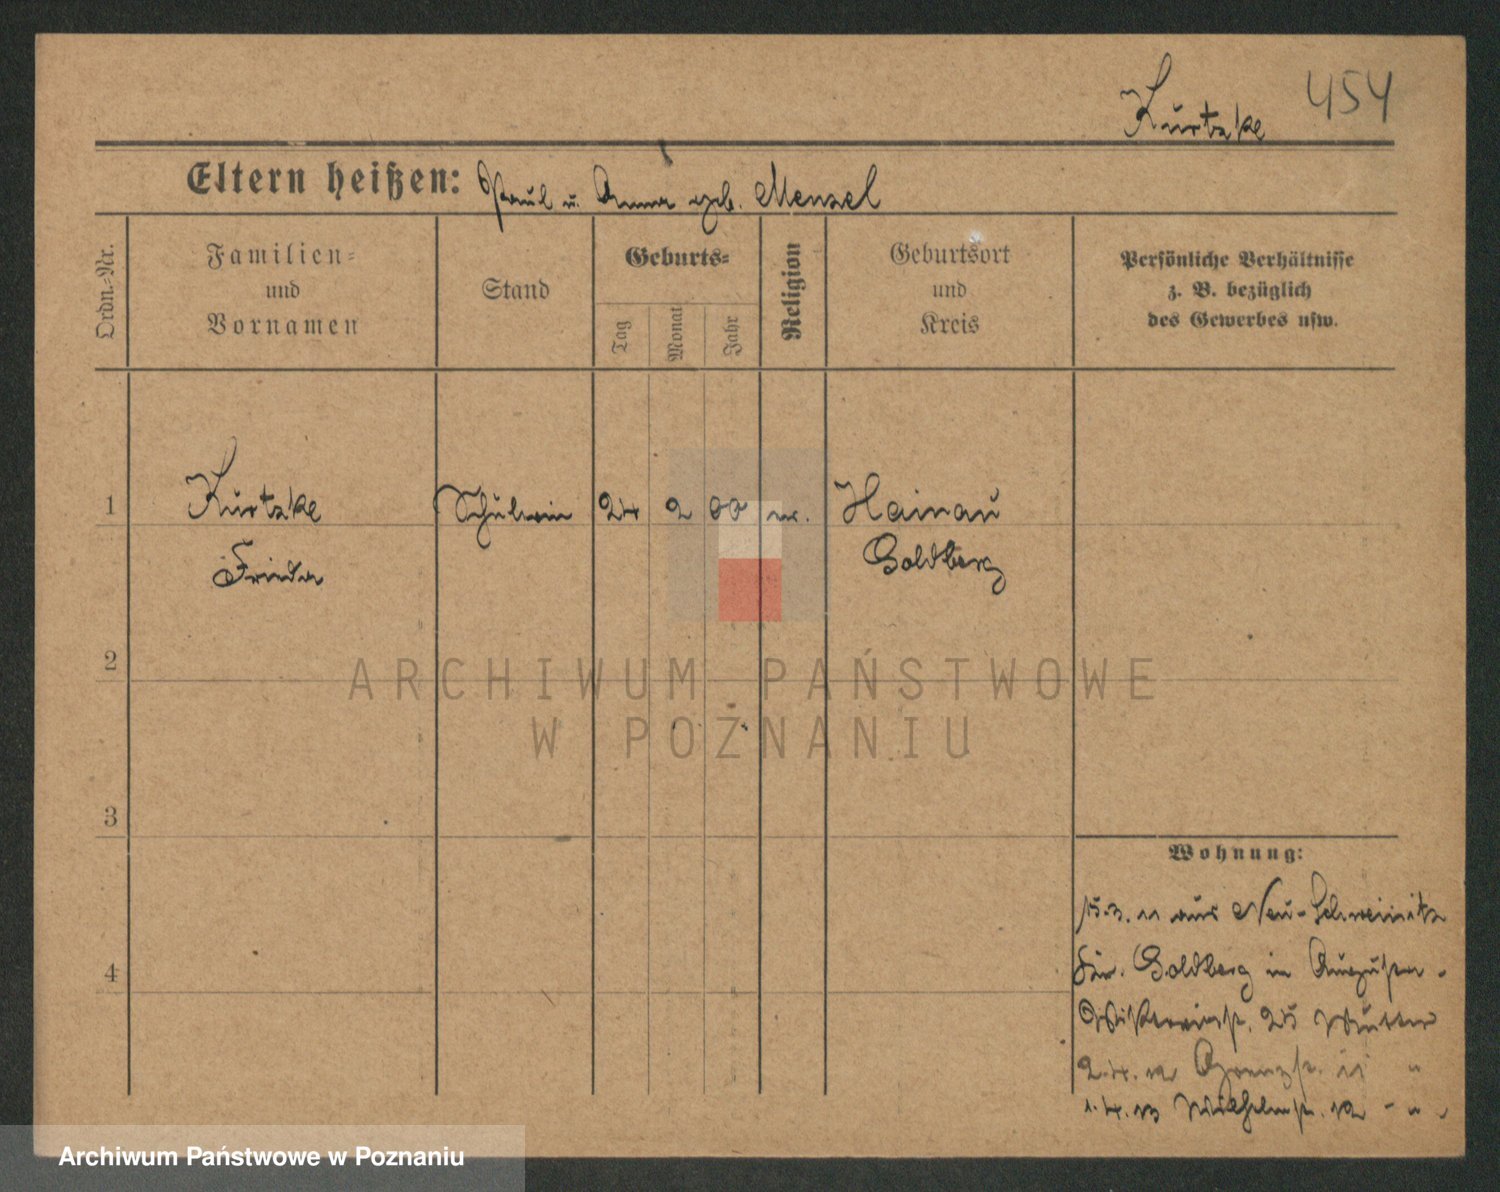 Kurtzke 454
Eltern heißen: Paul u. Anna geb. Menzel
Ordn.-Nr.
Familien-
und
Vornamen
Stand
Geburts-
Tag
Monat
Jahr
Religion
Geburtsort
und
Kreis
Persönliche Verhältnisse
z. B. bezüglich
des Gewerbes usw.
1 Kurtzke Schülerin 24 2 00 Hainau
Frieda Goldberg
2
3
4
Wohnung:
15.3. 11 aus Neu-Schweinitz
Kr. Goldberg in
25 Mutter
2.4. 12 Grenzstr. 11 "
1.4. 13 Wilhelmstr. 12 - " -
ARCHIWUM PAŃSTWOWE
W POZNANIU
Archiwum Państwowe w Poznaniu